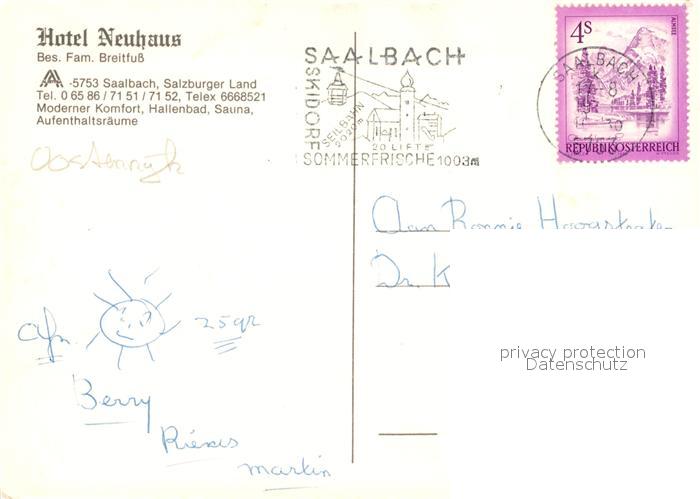 Hotel Neuhaus
Bes. Fam. Breitfuß
A -5753 Saalbach, Salzburger Land
Tel. 0 65 86 / 71 51 / 71 52, Telex 6668521
Moderner Komfort, Hallenbad, Sauna,
Aufenthaltsräume
Oostenrijk
SAALBACH
SKIDORF
SEILBAHN
2020m
20 LIFTE
SOMMERFRISCHE 1003m
4S
ALMSEE
SAALBACH
5753
REPUBLIK ÖSTERREICH
Aan Ronnie
Dr. K
privacy protection
Datenschutz
afz
25 gr
Berry
martin